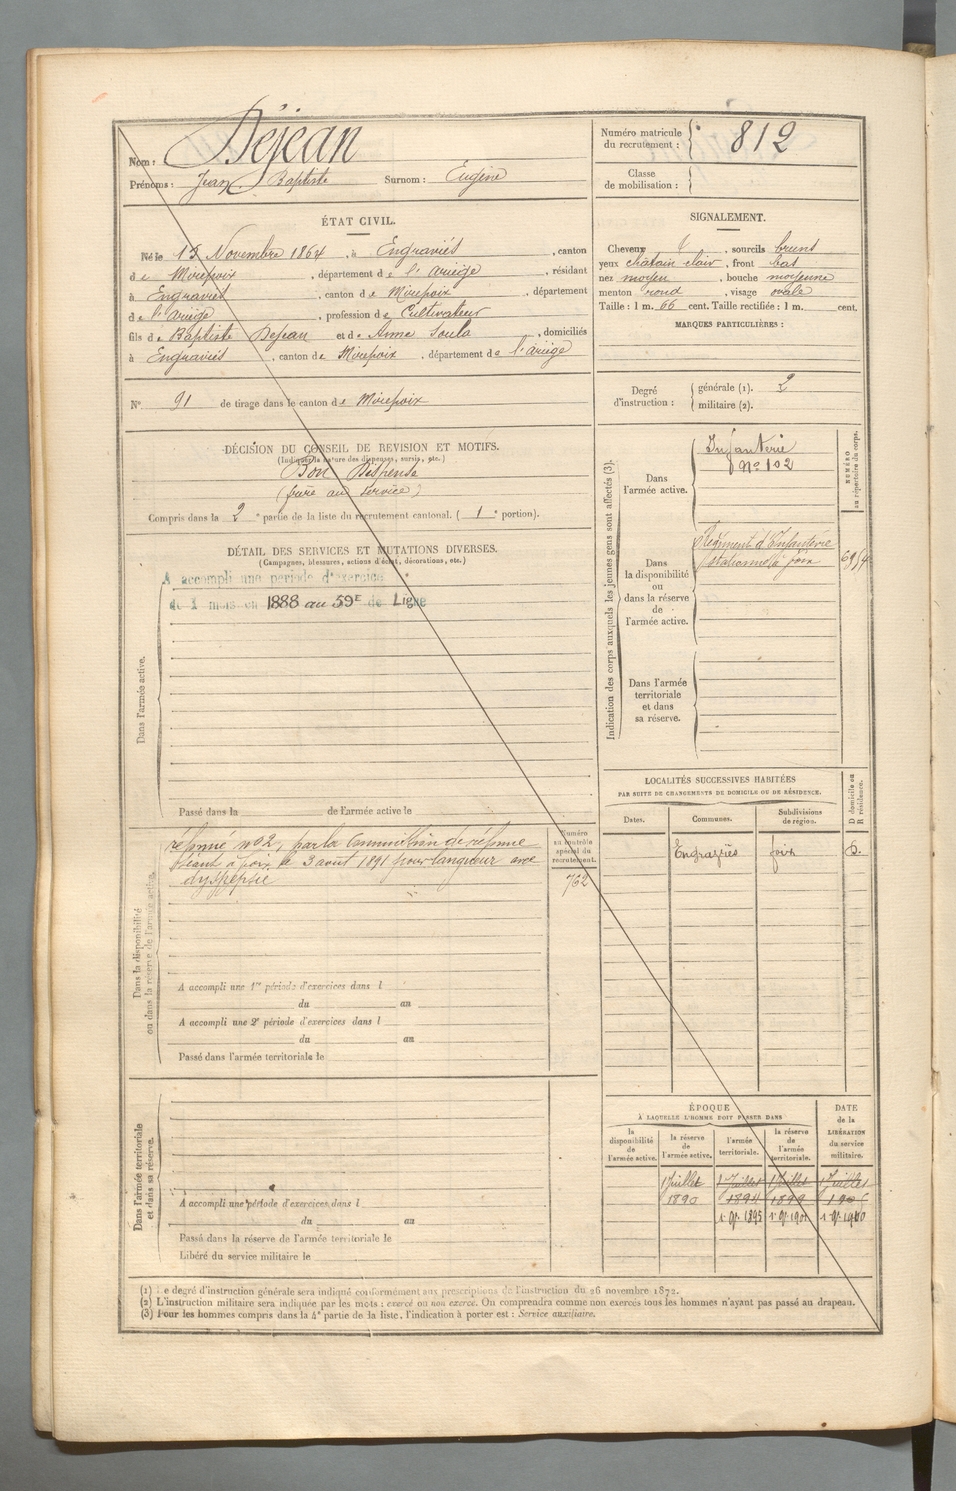 Nom : Déjean
Prénoms : Jean Baptiste Surnom : Eugène
Numéro matricule du recrutement : 812
Classe de mobilisation :
ÉTAT CIVIL.
Né le 12 Novembre 1864, à Engraviés, canton
de Mirepoix, département de l'Ariège, résidant
à Engraviés, canton de Mirepoix, département
de l'Ariège, profession de Cultivateur
fils de Baptiste Dejean et de Anne Soula, domiciliés
à Engraviés, canton de Mirepoix, département de l'Ariège
SIGNALEMENT.
Cheveux, sourcils bruns
yeux chatain clair, front bas
nez moyen, bouche moyenne
menton rond, visage ovale
Taille : 1 m. 66 cent. Taille rectifiée : 1 m. cent.
MARQUES PARTICULIÈRES :
N° 91 de tirage dans le canton de Mirepoix
Degré d'instruction : générale (1). 2
militaire (2).
DÉCISION DU CONSEIL DE REVISION ET MOTIFS.
(Indiquer la nature des dispenses, sursis, etc.)
Bon Dispensé
(frère au service)
Compris dans la 2e partie de la liste du recrutement cantonal. (1e portion).
DÉTAIL DES SERVICES ET MUTATIONS DIVERSES.
(Campagnes, blessures, actions d'éclat, décorations, etc.)
Dans l'armée active.
A accompli une période d'exercice
de 1 mois en 1888 au 59E de Ligne
Passé dans la de l'armée active le
Indication des corps auxquels les jeunes gens sont affectés (3).
NUMÉRO au répertoire du corps.
Dans l'armée active.
Infanterie
N° 102
Dans la disponibilité ou dans la réserve de l'armée active.
Régiment d'Infanterie
stationné à foix
6954
Dans l'armée territoriale et dans sa réserve.
LOCALITÉS SUCCESSIVES HABITÉES
PAR SUITE DE CHANGEMENTS DE DOMICILE OU DE RÉSIDENCE.
Dates. Communes. Subdivisions de région. D domicile ou R résidence.
Engraviés foix D.
Dans la disponibilité ou dans la réserve de l'armée active.
Numéro au contrôle spécial du recrutement.
762
réformé n°2, par la Commission de réforme
séant à foix le 3 août 1891 pour langueur avec
dyspepsie
A accompli une 1re période d'exercices dans l
du au
A accompli une 2e période d'exercices dans l
du au
Passé dans l'armée territoriale le
Dans l'armée territoriale et dans sa réserve.
A accompli une période d'exercices dans l
du au
Passé dans la réserve de l'armée territoriale le
Libéré du service militaire le
ÉPOQUE
À LAQUELLE L'HOMME DOIT PASSER DANS
la disponibilité de l'armée active. la réserve de l'armée active. l'armée territoriale. la réserve de l'armée territoriale.
DATE de la LIBÉRATION du service militaire.
1 Juillet 1 Juillet 1 Juillet 1 Juillet
1890 1894 1899
(1) Le degré d'instruction générale sera indiqué conformément aux prescriptions de l'instruction du 26 novembre 1872.
(2) L'instruction militaire sera indiquée par les mots : exercé ou non exercé. On comprendra comme non exercés tous les hommes n'ayant pas passé au drapeau.
(3) Pour les hommes compris dans la 4e partie de la liste, l'indication à porter est : Service auxiliaire.